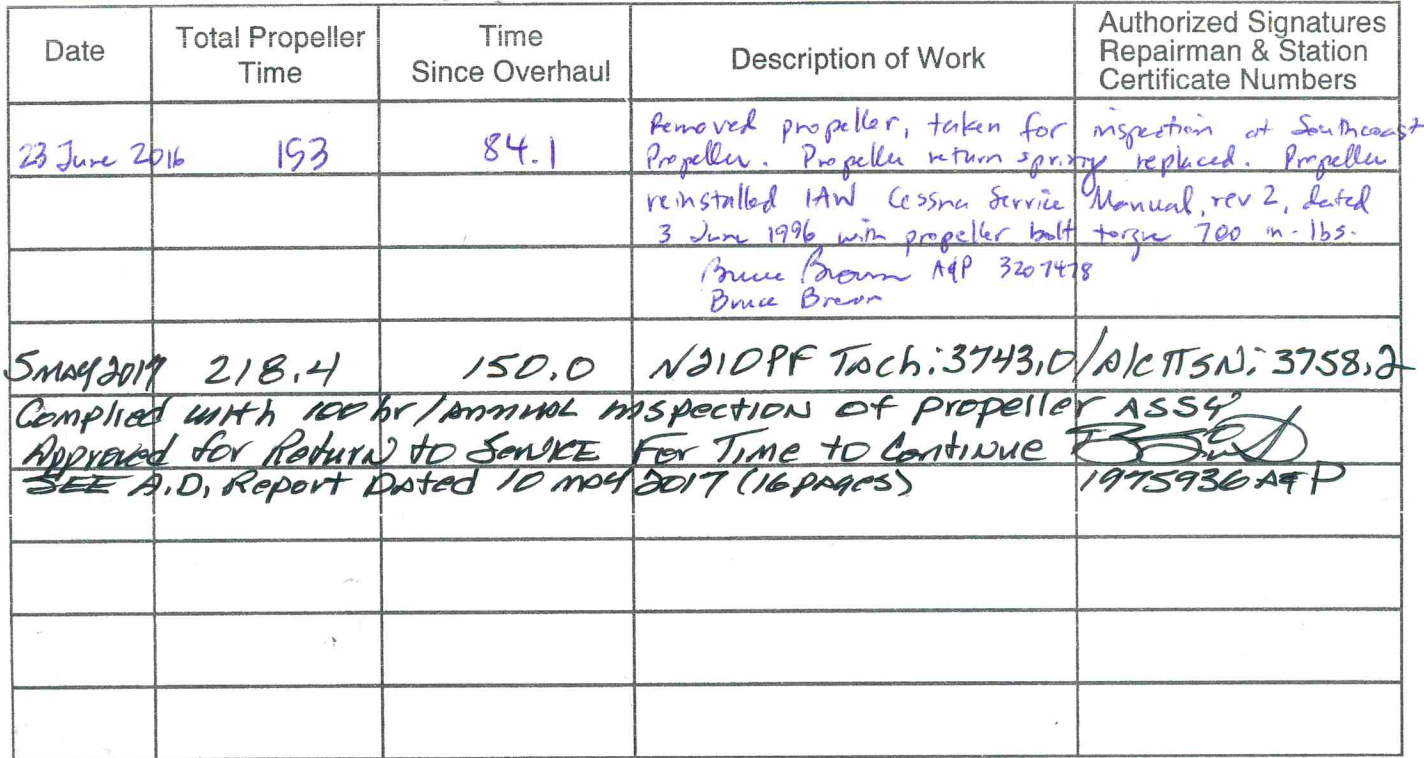 Date
Total Propeller
Time
Time
Since Overhaul
Description of Work
Authorized Signatures
Repairman & Station
Certificate Numbers
23 June 2016 153 84.1
Removed propeller, taken for inspection at Southcoast
Propeller. Propeller return spring replaced. Propeller
reinstalled IAW Cessna Service Manual, rev 2, dated
3 June 1996 with propeller bolt torque 700 in-lbs.
Bruce Brown A&P 3207478
Bruce Brown
5 MAY 2017 218.4 150.0 N210PF Tach: 3743.0/A/C TTSN: 3758.2
Complied with 100 hr/Annual inspection of propeller ASSY
Approved for Return to Service For Time to Continue
SEE A.D. Report Dated 10 May 2017 (16 pages) 1975936 A&P